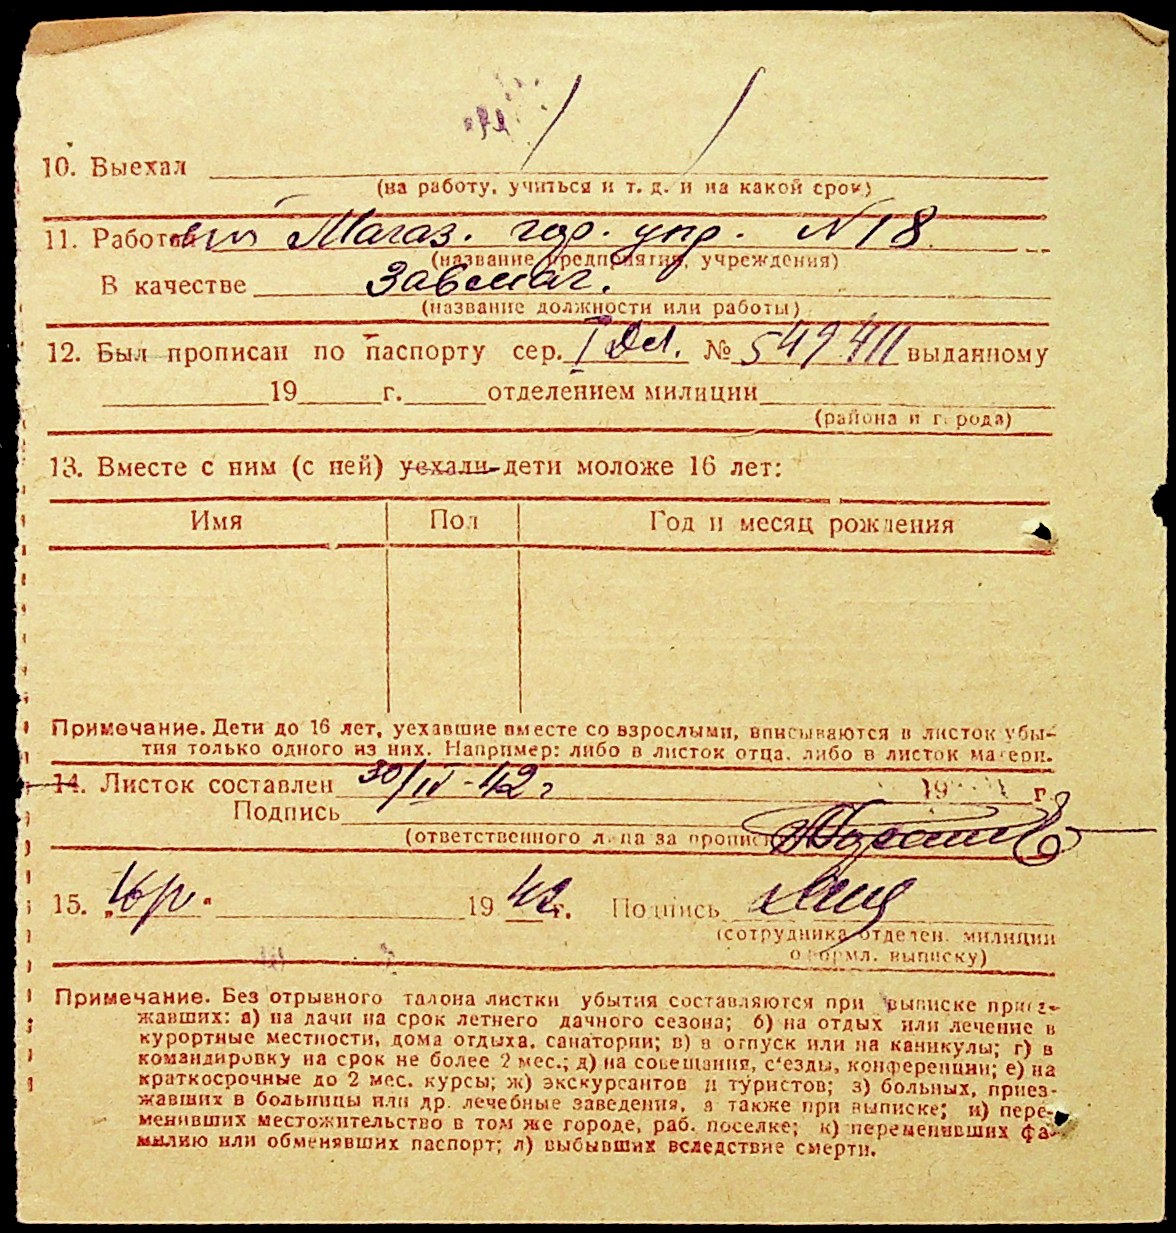 10. Выехал
(на работу, учиться и т. д. и на какой срок)
11. Работает Магаз. гор. упр. №18
(название предприятия, учреждения)
В качестве Завмаг.
(название должности или работы)
12. Был прописан по паспорту сер. № выданному
19 г. отделением милиции
(района и города)
13. Вместе с ним (с ней) уехали дети моложе 16 лет:
Имя Пол Год и месяц рождения
Примечание. Дети до 16 лет, уехавшие вместе со взрослыми, вписываются в листок убы-
тия только одного из них. Например: либо в листок отца, либо в листок матери.
14. Листок составлен 30/IV-42г 19 г.
Подпись
(ответственного лица за прописку)
15. 19 42 г. Подпись
(сотрудника отделен. милиции
оформл. выписку)
Примечание. Без отрывного талона листки убытия составляются при выписке приез-
жавших: а) на дачи на срок летнего дачного сезона; б) на отдых или лечение в
курортные местности, дома отдыха, санатории; в) в отпуск или на каникулы; г) в
командировку на срок не более 2 мес.; д) на совещания, с'езды, конференции; е) на
краткосрочные до 2 мес. курсы; ж) экскурсантов и туристов; з) больных, приез-
жавших в больницы или др. лечебные заведения, а также при выписке; и) пере-
менивших местожительство в том же городе, раб. поселке; к) переменивших фа-
милию или обменявших паспорт; л) выбывших вследствие смерти.